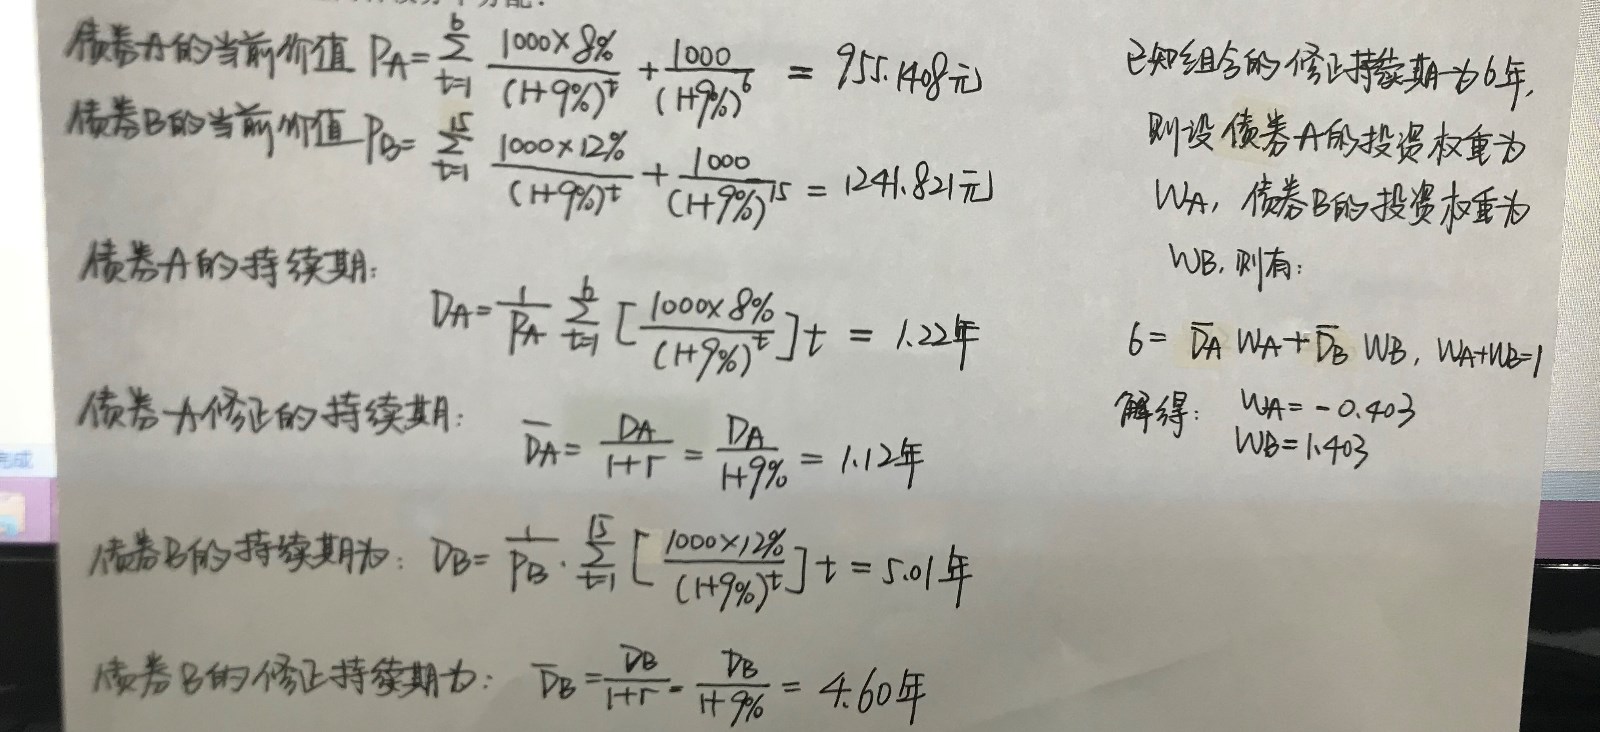 债券A的当前价值 PA = \sum_{t=1}^{6} \frac{1000×8%}{(1+9%)^t} + \frac{1000}{(1+9%)^6} = 955.1408元
债券B的当前价值 PB = \sum_{t=1}^{15} \frac{1000×12%}{(1+9%)^t} + \frac{1000}{(1+9%)^{15}} = 1241.821元
债券A的持续期:
DA = \frac{1}{PA} \sum_{t=1}^{6} [\frac{1000×8%}{(1+9%)^t}] t = 1.22年
债券A修正的持续期:
\overline{D}A = \frac{DA}{1+r} = \frac{DA}{1+9%} = 1.12年
债券B的持续期为: DB = \frac{1}{PB} · \sum_{t=1}^{15} [\frac{1000×12%}{(1+9%)^t}] t = 5.01年
债券B的修正持续期为: \overline{D}B = \frac{DB}{1+r} = \frac{DB}{1+9%} = 4.60年
已知组合的修正持续期为6年,
则设债券A的投资权重为
WA, 债券B的投资权重为
WB, 则有:
6 = \overline{D}A WA + \overline{D}B WB, WA+WB=1
解得: WA = -0.403
WB = 1.403
完成